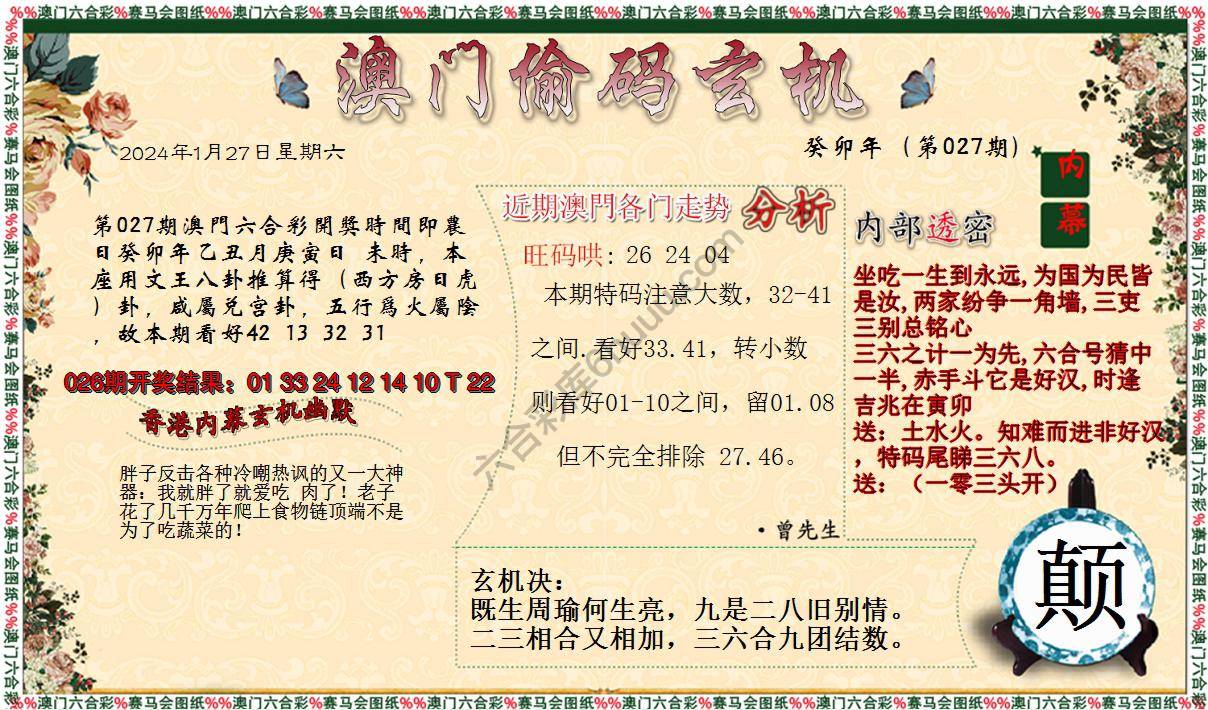 %%澳门六合彩%赛马会图纸%%澳门六合彩%赛马会图纸%%澳门六合彩%赛马会图纸%%澳门六合彩%赛马会图纸%%澳门六合彩%赛马会图纸%%澳门六合彩%赛马会图纸%%
澳门偷码玄机
2024年1月27日星期六
癸卯年（第027期）
内
幕
第027期澳門六合彩開獎時間即農
日癸卯年乙丑月庚寅日 未時，本
座用文王八卦推算得（西方房日虎
）卦，咸屬兑宫卦，五行爲火屬陰
，故本期看好42 13 32 31
026期开奖结果：01 33 24 12 14 10 T 22
香港内幕玄机幽默
胖子反击各种冷嘲热讽的又一大神
器：我就胖了就爱吃 肉了！老子
花了几千万年爬上食物链顶端不是
为了吃蔬菜的！
近期澳門各门走势 分析
旺码哄: 26 24 04
本期特码注意大数，32-41
之间.看好33.41，转小数
则看好01-10之间，留01.08
但不完全排除 27.46。
·曾先生
内部透密
坐吃一生到永远,为国为民皆
是汝,两家纷争一角墙,三吏
三别总铭心
三六之计一为先,六合号猜中
一半,赤手斗它是好汉,时逢
吉兆在寅卯
送：土水火。知难而进非好汉
，特码尾睇三六八。
送：（一零三头开）
玄机决：
既生周瑜何生亮，九是二八旧别情。
二三相合又相加，三六合九团结数。
颠
%%澳门六合彩%赛马会图纸%%澳门六合彩%赛马会图纸%%澳门六合彩%赛马会图纸%%澳门六合彩%赛马会图纸%%澳门六合彩%赛马会图纸%%澳门六合彩%赛马会图纸%%